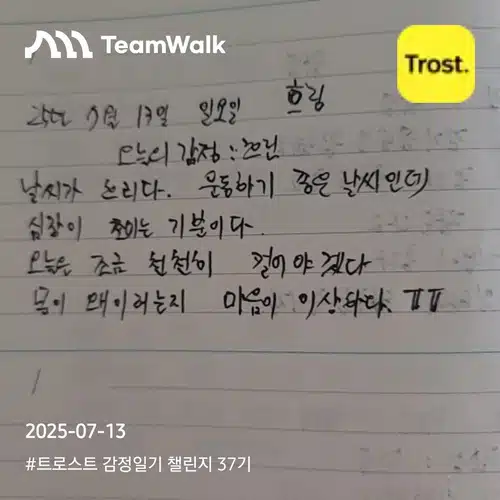 TeamWalk
Trost.
25년 7월 13일 일요일 흐림
오늘의 감정:
날씨가 흐리다. 운동하기 좋은 날씨인데
심장이 조이는 기분이다.
오늘은 조금 천천히 걸어야겠다
몸이 왜이러는지 마음이 이상하다. ㅠㅠ
2025-07-13
#트로스트 감정일기 챌린지 37기